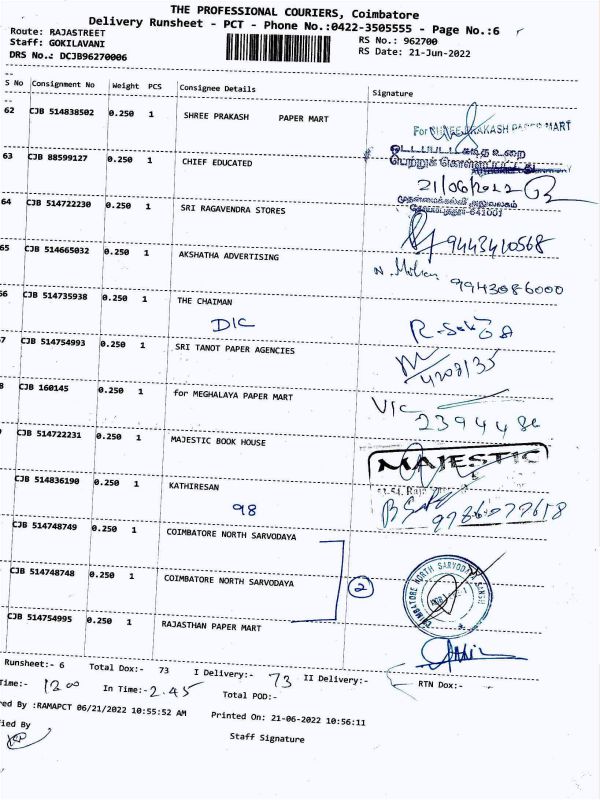 THE PROFESSIONAL COURIERS, Coimbatore
Delivery Runsheet - PCT - Phone No.:0422-3505555 - Page No.:6
Route: RAJASTREET
Staff: GOKILAVANI
DRS No.: DCJB96270006
RS No.: 962700
RS Date: 21-Jun-2022
S No Consignment No Weight PCS Consignee Details Signature
62 CJB 514838502 0.250 1 SHREE PRAKASH PAPER MART
For SHREE PRAKASH PAPER MART
63 CJB 88599127 0.250 1 CHIEF EDUCATED
21/06/2022
641001
64 CJB 514722230 0.250 1 SRI RAGAVENDRA STORES
9443410568
65 CJB 514665032 0.250 1 AKSHATHA ADVERTISING
N. Mohan 9943086000
66 CJB 514735938 0.250 1 THE CHAIMAN
DIC
7 CJB 514754993 0.250 1 SRI TANOT PAPER AGENCIES
8 CJB 160145 0.250 1 for MEGHALAYA PAPER MART
CJB 514722231 0.250 1 MAJESTIC BOOK HOUSE
MAJESTIC
CJB 514836190 0.250 1 KATHIRESAN
98
CJB 514748749 0.250 1 COIMBATORE NORTH SARVODAYA
CJB 514748748 0.250 1 COIMBATORE NORTH SARVODAYA
2
COIMBATORE NORTH SARVODAYA SANGH
CJB 514754995 0.250 1 RAJASTHAN PAPER MART
Runsheet:- 6 Total Dox:- 73 I Delivery:- 73 II Delivery:- RTN Dox:-
Time:- 1300 In Time:- 2.45 Total POD:-
red By :RAMAPCT 06/21/2022 10:55:52 AM Printed On: 21-06-2022 10:56:11
fied By
Staff Signature